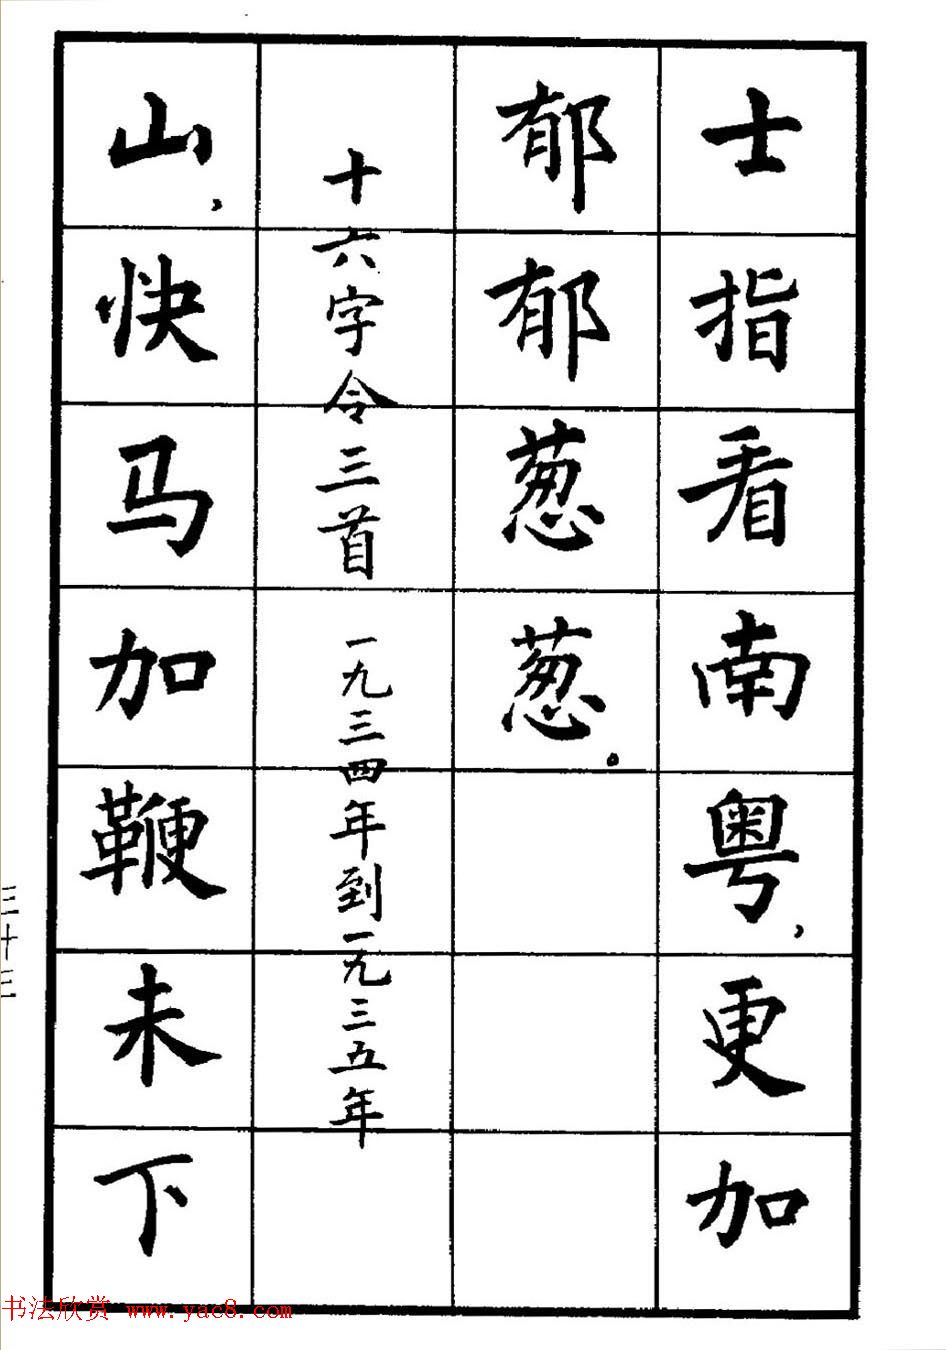 士指看南粤，更加
郁郁葱葱。
十六字令三首 一九三四年到一九三五年
山，快马加鞭未下
三十三
书法欣赏 www.yac8.com